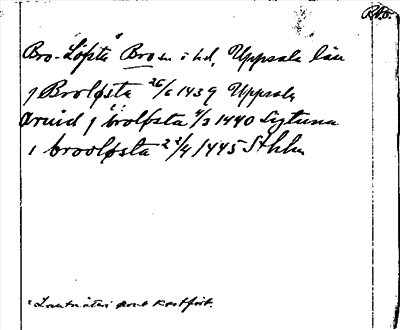 R.A.O.
Bro-Löfsta* Bro sn o hd, Uppsala län
j Broløsta 26/6 1439 Uppsala
Arvid j broløsta 4/3 1440 Sigtuna
i brooløsta 23/4 1445 Sthlm
* Lantmäteri och kartförk.